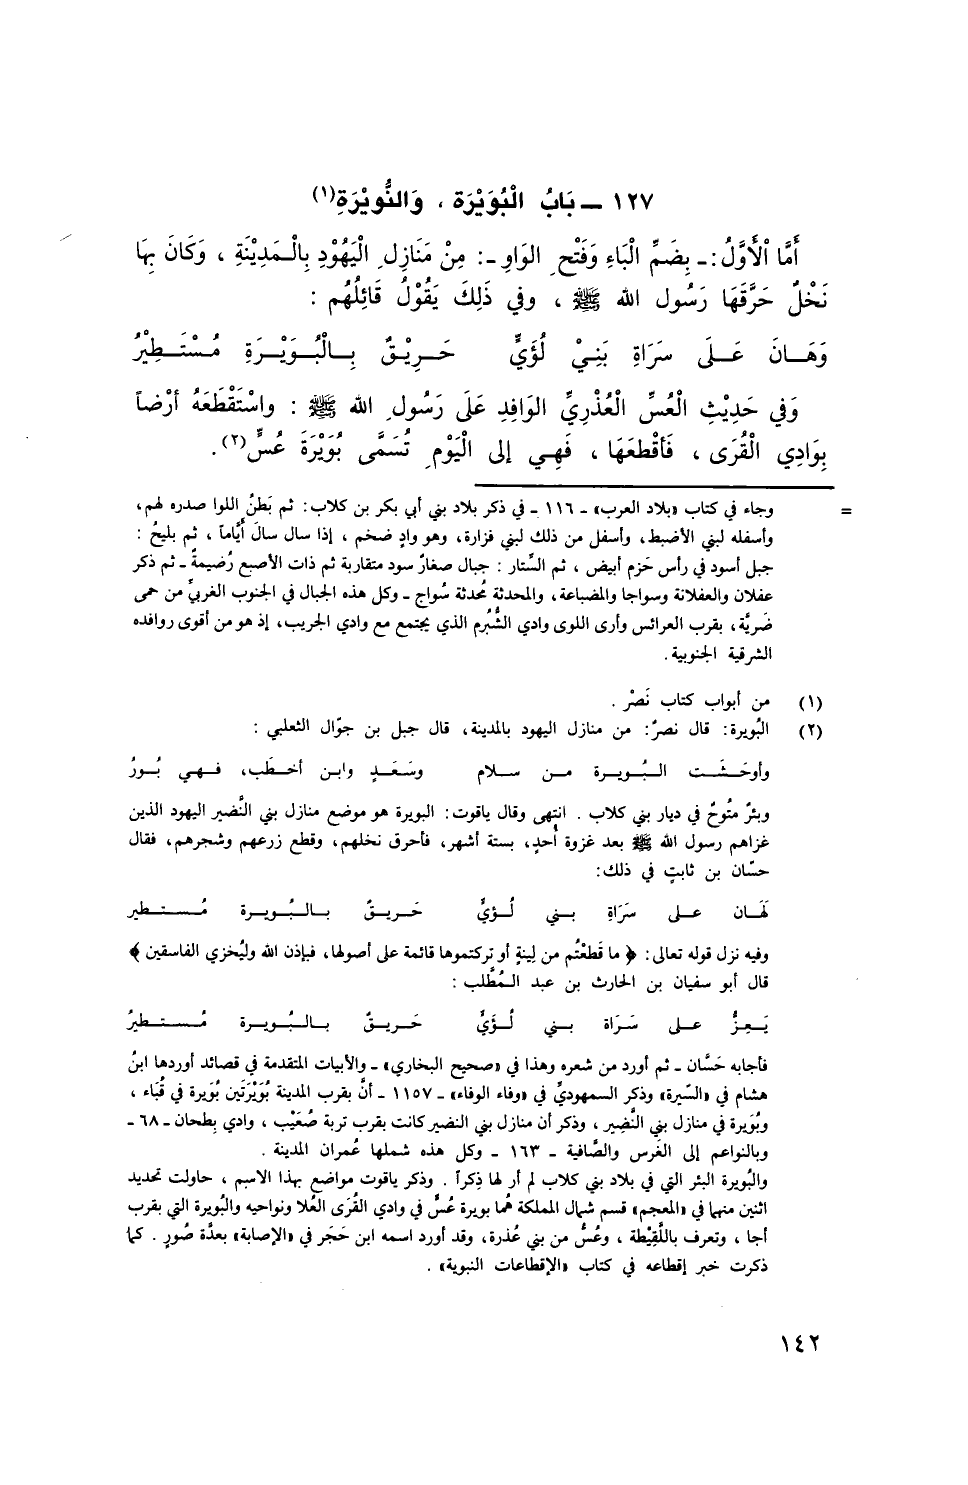 ١٢٧ ــ بَابُ الْبُوَيْرَة ، وَالنُّوِيْرَةِ(١)
أَمَّا الْأَوَّلُ:ـ بِضَمِّ الْبَاءِ وَفَتْحِ الوَاوِ ـ: مِنْ مَنَازِلِ الْيَهُوْدِ بِالْـمَدِيْنَةِ ، وَكَانَ بِهَا
نَخْلٌ حَرَّقَهَا رَسُول الله ﷺ ، وفي ذَلِكَ يَقُوْلُ قَائِلُهُم :
وَهَـانَ عَـلَى سَرَاةِ بَنِيْ لُؤَيٍّ حَـرِيْـقٌ بِـالْـبُـوَيْـرَةِ مُـسْـتَـطِـيْرُ
وَفي حَدِيْثِ الْعُسِّ الْعُذْرِيِّ الوَافِدِ عَلَى رَسُولِ الله ﷺ : واسْتَقْطَعَهُ أرْضاً
بِوَادِي الْقُرَى ، فَأَقْطَعَهَا ، فَهِي إلى الْيَوْمِ تُسَمَّى بُوَيْرَةَ عُسٍّ(٢).
= وجاء في كتاب «بلاد العرب» ـ ١١٦ ـ في ذكر بلاد بني أبي بكر بن كلاب: ثم بَطنُ اللوا صدره لهم،
وأسفله لبني الأضبط، وأسفل من ذلك لبني فزارة، وهو وادٍ ضخم ، إذا سال سالَ أَيَّاماً ، ثم بليحُ :
جبل أسود في رأس حَزم أبيض ، ثم السِّتار : جبال صغارٌ سود متقاربة ثم ذات الأصبع رُضيمةٌ ـ ثم ذكر
عفلان والعفلانة وسواجا والمضباعة، والمحدثة مُحدثة سُواج ـ وكل هذه الجبال في الجنوب الغربيِّ من حمى
ضَريَّة، بقرب العرائس وأرى اللوى وادي الشُّبُرم الذي يجتمع مع وادي الجريب، إذ هو من أقوى روافده
الشرقية الجنوبية.
(١) من أبواب كتاب نَصْر .
(٢) البُويرة: قال نصرٌ: من منازل اليهود بالمدينة، قال جبل بن جوّال الثعلبي :
وأوحَشَت الـبُـويـرة مـن سـلام وسَعَـدٍ وابـن أخـطَب، فـهـي بُـورُ
وبئرٌ متُوحٌ في ديار بني كلاب . انتهى وقال ياقوت: البويرة هو موضع منازل بني النَّضير اليهود الذين
غزاهم رسول الله ﷺ بعد غزوة أُحدٍ، بستة أشهر، فأحرق نخلهم، وقطع زرعهم وشجرهم، فقال
حسّان بن ثابتٍ في ذلك:
لَهـان عـلى سَرَاةِ بـني لُـؤيٍّ حَـريـقٌ بـالـبُـويـرة مُـسـتـطـير
وفيه نزل قوله تعالى: ﴿ ما قَطعْتُم من لِينةٍ أو تركتموها قائمة على أصولها، فبإذن الله وليُخزي الفاسقين ﴾
قال أبو سفيان بن الحارث بن عبد الـمُطَّلب :
يَـعِـزُّ عـلى سَرَاة بـني لُـؤيٍّ حَـريـقٌ بـالـبُـويـرة مُـسـتـطـيرُ
فأجابه حَسَّان ـ ثم أورد من شعره وهذا في «صحيح البخاري» ـ والأبيات المتقدمة في قصائد أوردها ابنُ
هشام في «السِّيرة» وذكر السمهوديُّ في «وفاء الوفاء» ـ ١١٥٧ ـ أنَّ بقرب المدينة بُوَيْرَتَين بُوَيرة في قُبَاء ،
وبُوَيرة في منازل بني النَّضِير ، وذكر أن منازل بني النضير كانت بقرب تربة صُعَيْب ، وادي بِطحان ـ ٦٨ ـ
وبالنواعم إلى الغَرس والصَّافية ـ ١٦٣ ـ وكل هذه شملها عُمران المدينة .
والبُويرة البئر التي في بلاد بني كلاب لم أر لها ذِكراً . وذكر ياقوت مواضع بهذا الاسم ، حاولت تحديد
اثنين منها في «المعجم» قسم شمال المملكة هُما بويرة عُسٍّ في وادي القُرَى العُلا ونواحيه والبُويرة التي بقرب
أجا ، وتعرف باللَّقِيْطة ، وعُسٌّ من بني عُذرة، وقد أورد اسمه ابن حَجَر في «الإصابة» بعدَّة صُورٍ . كما
ذكرت خبر إقطاعه في كتاب «الإقطاعات النبوية» .
١٤٢